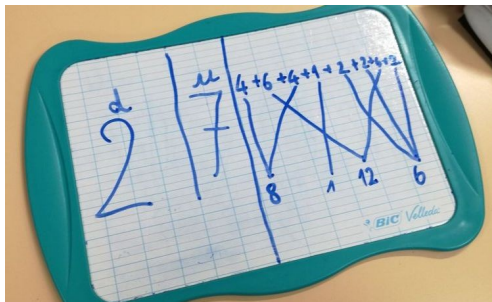 d u 4+6+4+1+2+2+6+2
2 7
8 1 12 6
BIC Velleda